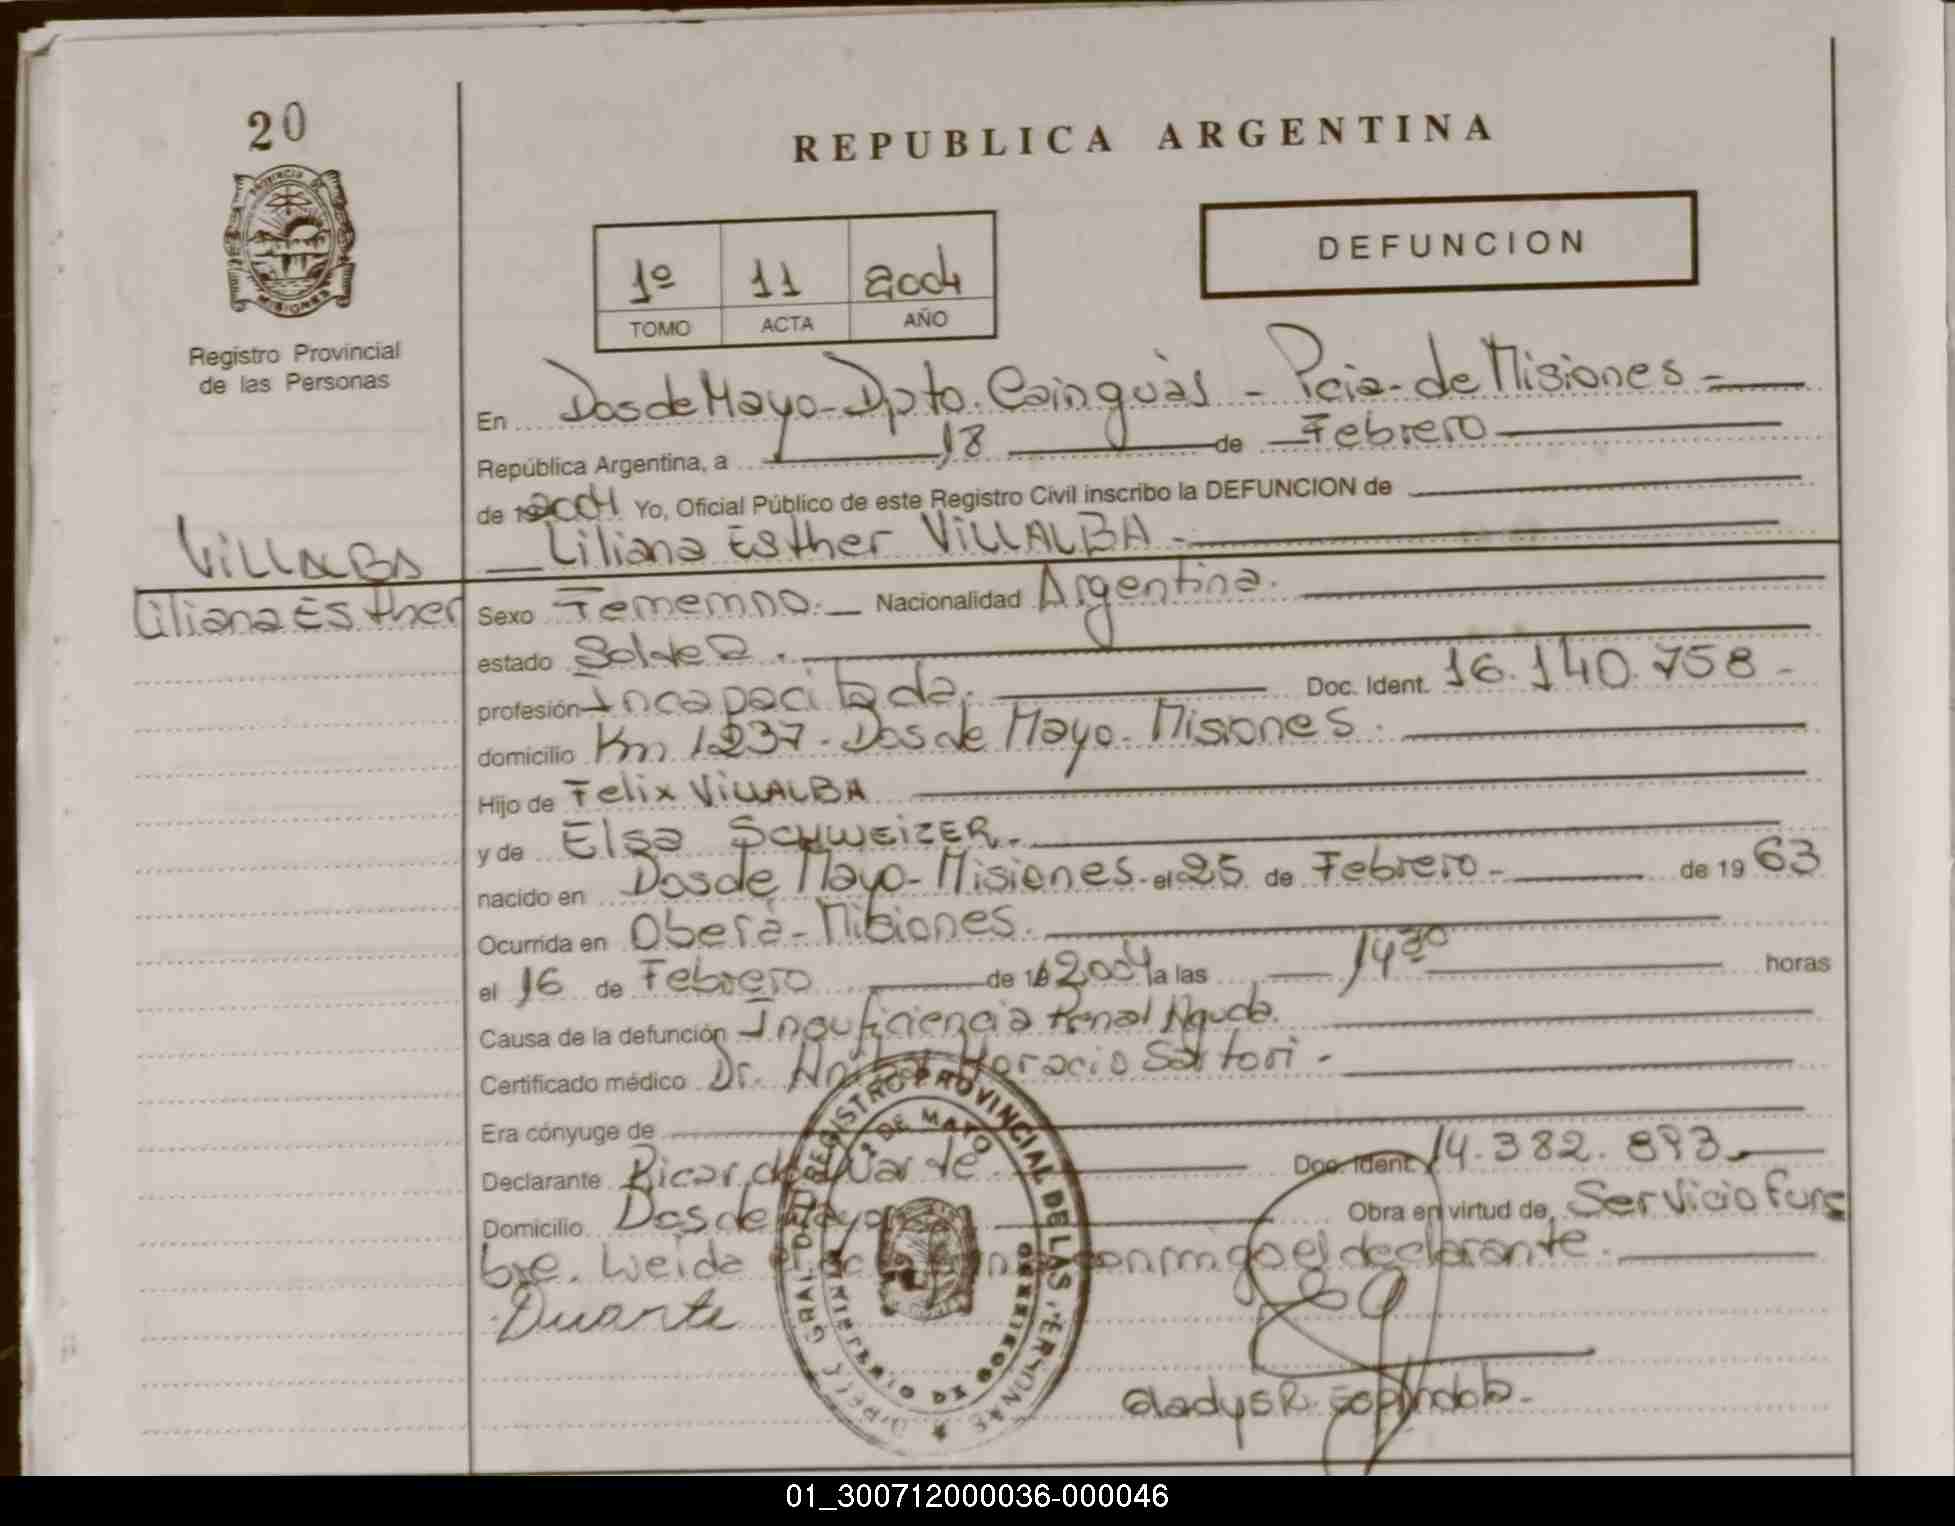 20
PROVINCIA DE
MISIONES
Registro Provincial
de las Personas
REPUBLICA ARGENTINA
DEFUNCION
1º 11 2004
TOMO ACTA AÑO
En Dos de Mayo - Dpto. Cainguàs - Pcia. de Misiones -
República Argentina, a 18 de Febrero
de 2004 Yo, Oficial Público de este Registro Civil inscribo la DEFUNCION de
Liliana Esther VILLALBA -
VILLALBA
Liliana Esther
Sexo Femenino. Nacionalidad Argentina.
estado Soltera.
profesión Incapacitada. Doc. Ident. 16.140.758 -
domicilio Km 1237 - Dos de Mayo - Misiones.
Hijo de Felix VILLALBA
y de Elsa SCHWEIZER.
nacido en Dos de Mayo - Misiones. el 25 de Febrero - de 19 63
Ocurrida en Oberà - Misiones.
el 16 de Febrero de 2004 a las 14 30 horas
Causa de la defunción Insuficiencia Renal Aguda.
Certificado médico Dr. Horacio Sartori -
Era cónyuge de
Declarante Ricardo Duarte. Doc. Ident. 14.382.893.
Domicilio Dos de Mayo Obra en virtud de Servicio Fune
bre. Leida el acta conmigo el declarante.
Duarte
DIREC. GRAL. DEL REGISTRO PROVINCIAL DE LAS PERSONAS
DE MAYO
MINISTERIO DE GOBIERNO
Gladys R. Espindola.
01_300712000036-000046